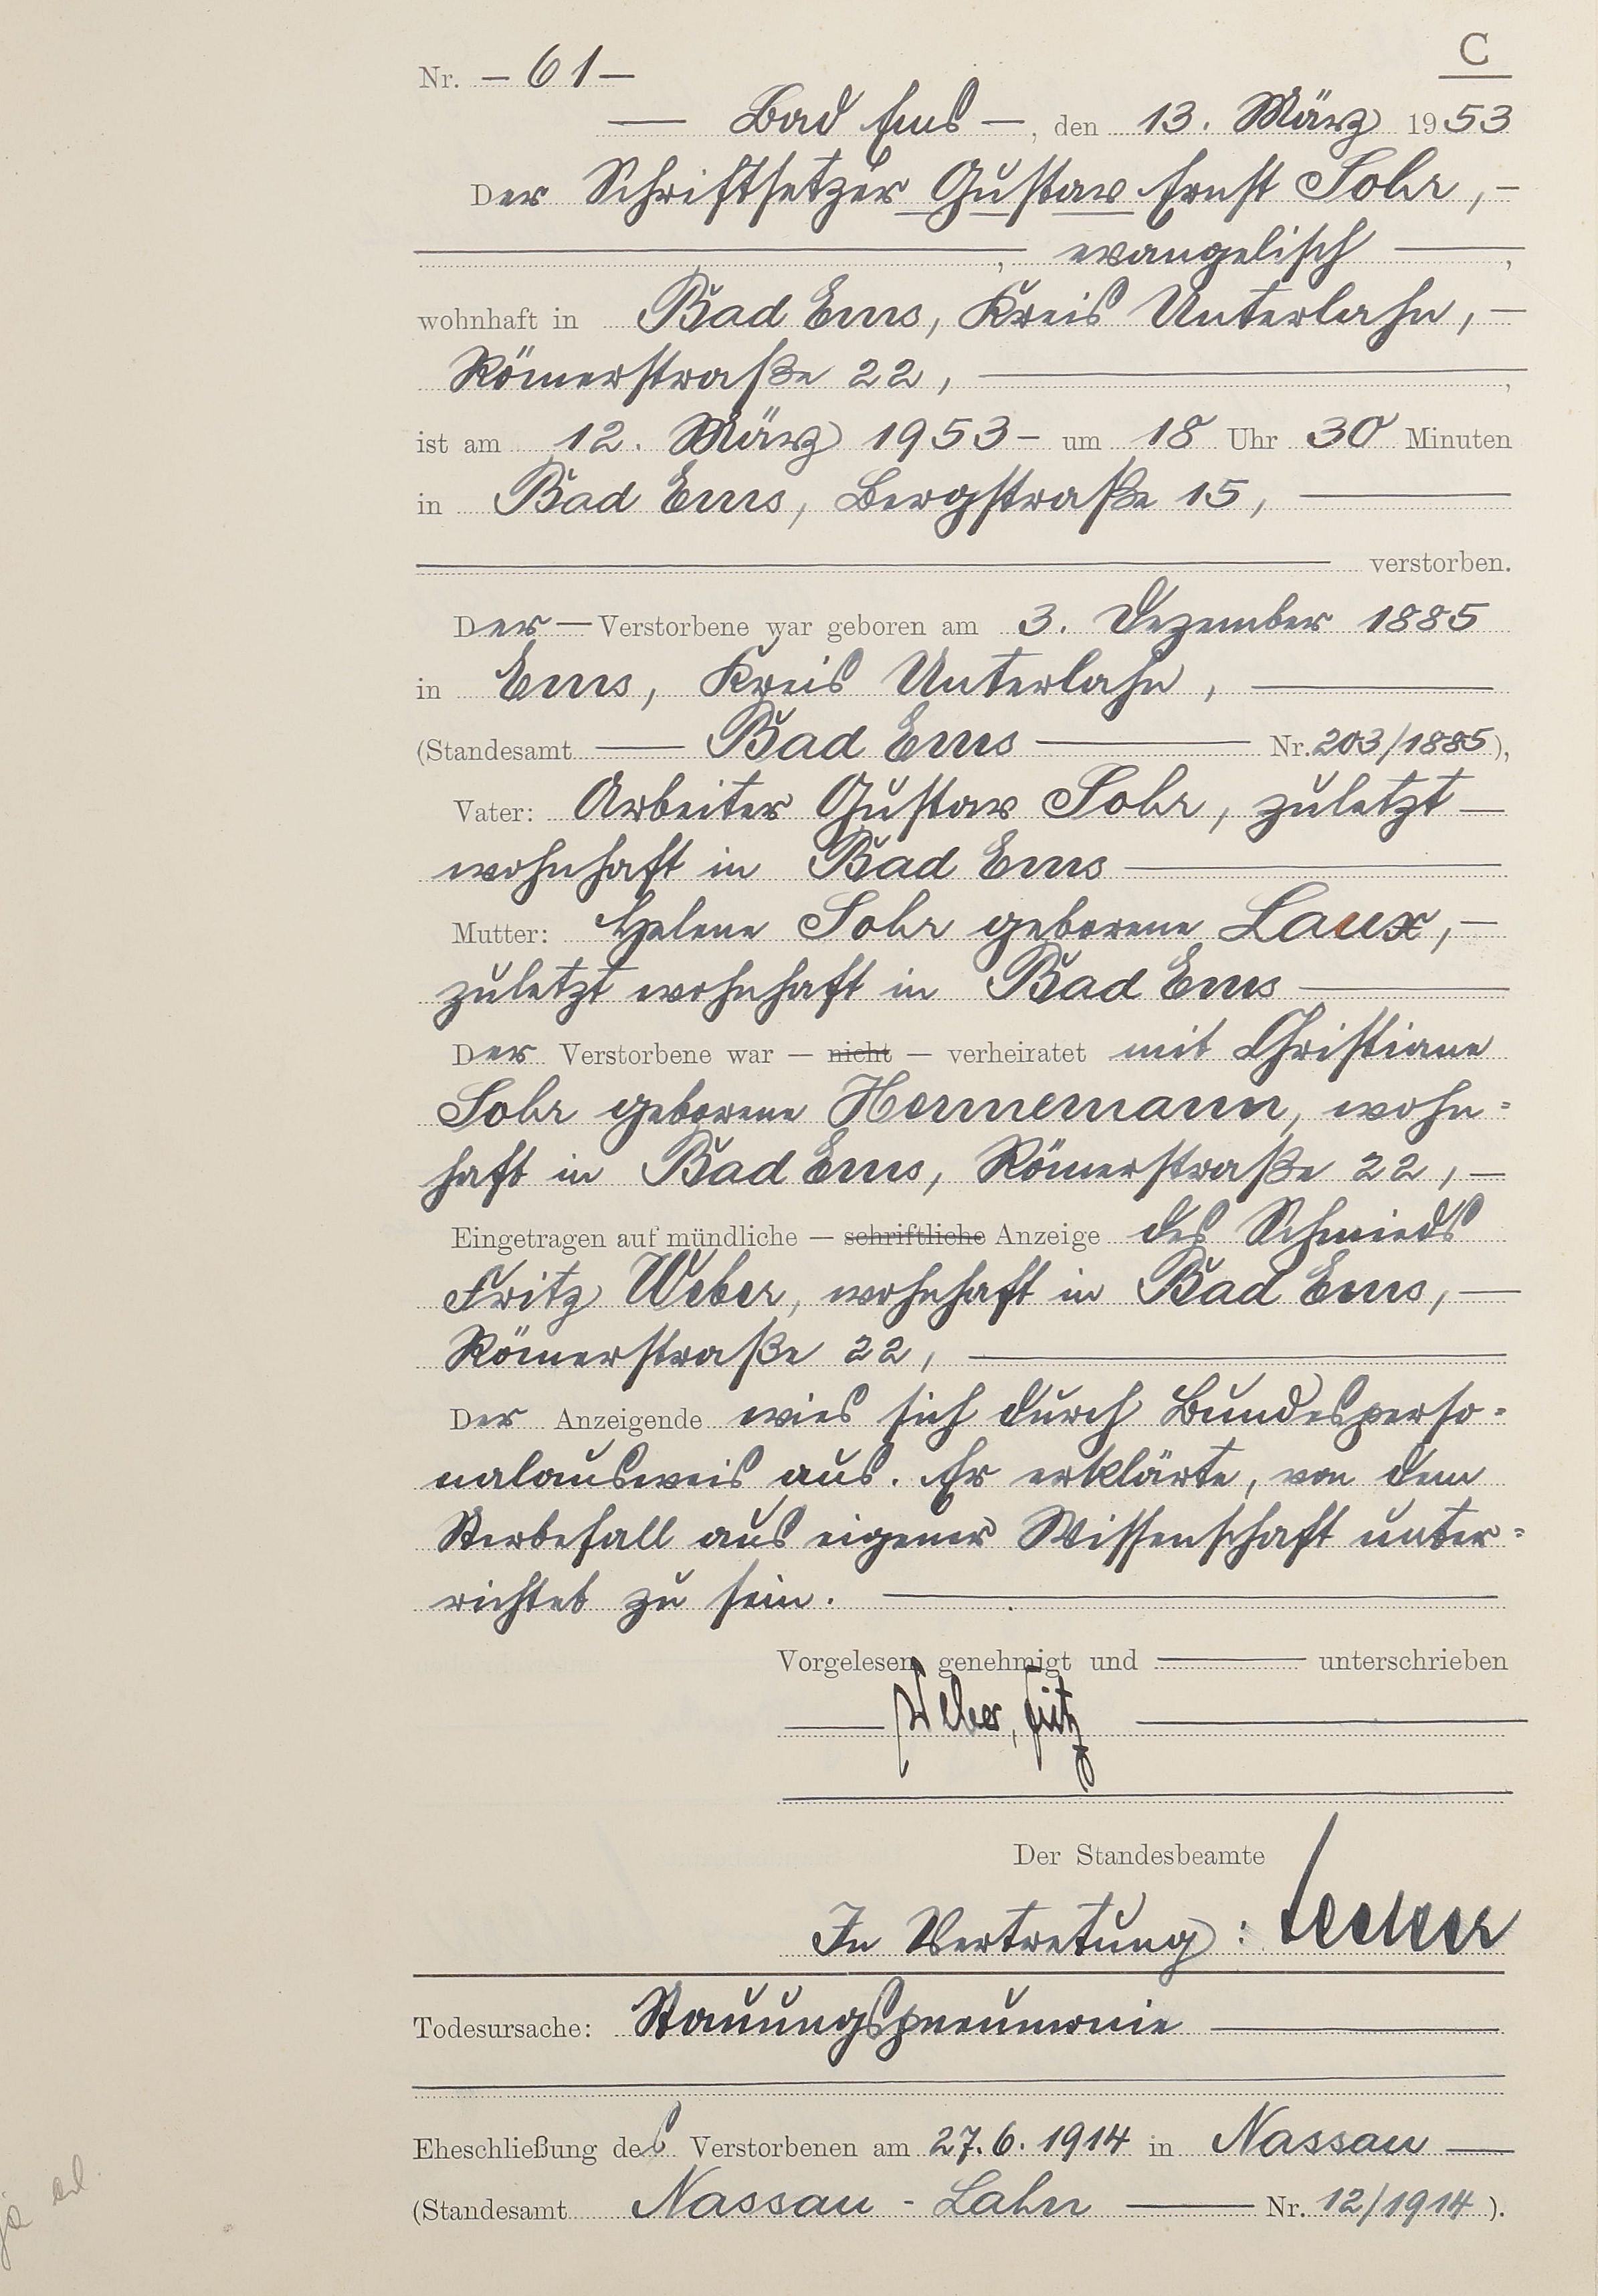 C
Nr. – 61 –
— Bad Ems —, den 13. März 1953
Der Schriftsetzer Gustav Ernst Sohr, –
, evangelisch —,
wohnhaft in Bad Ems, Kreis Unterlahn, –
Römerstraße 22, —,
ist am 12. März 1953 – um 18 Uhr 30 Minuten
in Bad Ems, Bergstraße 15, —
— verstorben.
Der — Verstorbene war geboren am 3. Dezember 1885
in Ems, Kreis Unterlahn, —
(Standesamt — Bad Ems — Nr. 203/1885),
Vater: Arbeiter Gustav Sohr, zuletzt —
wohnhaft in Bad Ems —
Mutter: Helene Sohr geborene Laux, –
zuletzt wohnhaft in Bad Ems —
Der Verstorbene war — nicht — verheiratet mit Christiane
Sohr geborene Hornemann, wohn=
haft in Bad Ems, Römerstraße 22, –
Eingetragen auf mündliche — schriftliche Anzeige des Schmieds
Fritz Weber, wohnhaft in Bad Ems, —
Römerstraße 22, —
Der Anzeigende wies sich durch Bundesperso=
nalausweis aus. Er erklärte, von dem
Sterbefall aus eigener Wissenschaft unter=
richtet zu sein. —
Vorgelesen, genehmigt und — unterschrieben
— Weber, Fritz —
Der Standesbeamte
In Vertretung:
Todesursache: Stauungspneumonie —
Eheschließung des Verstorbenen am 27.6.1914 in Nassau —
(Standesamt Nassau - Lahn — Nr. 12/1914).